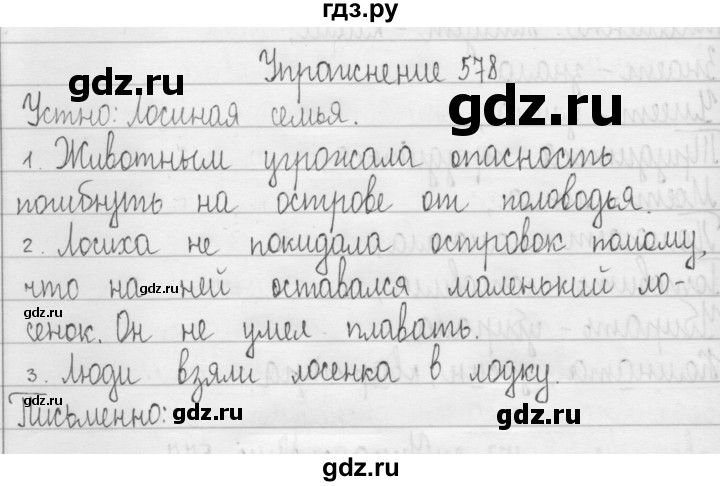 гдз.ру
Упражнение 578
gdz.ru gdz.ru
Устно: Лосиная семья.
1. Животным угрожала опасность
погибнуть на острове от половодья.
2. Лосиха не покидала островок потому,
что на ней оставался маленький ло-
gdz.ru gdz.ru
сенок. Он не умел плавать.
3. Люди взяли лосенка в лодку.
gdz.ru gdz.ru
Письменно:
gdz.ru gdz.ru
gdz.ru